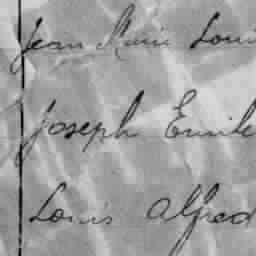 Jean Marie Loui
Joseph Emile
Louis Alfred